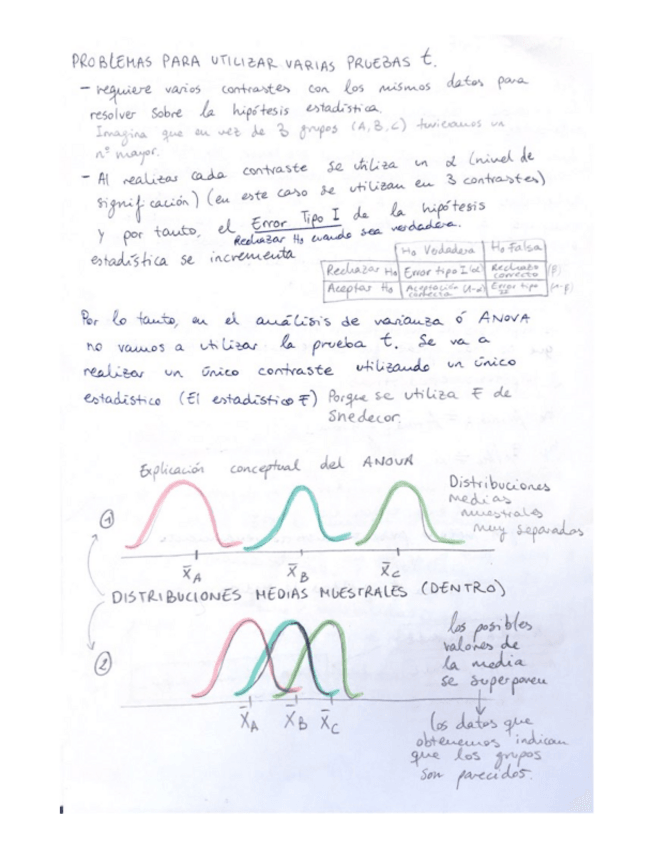 PROBLEMAS PARA UTILIZAR VARIAS PRUEBAS t.
- requiere varios contrastes con los mismos datos para
resolver sobre la hipótesis estadística.
Imagina que en vez de 3 grupos (A, B, C) tuvieramos un
nº mayor.
- Al realizar cada contraste se utiliza un α (nivel de
significación) (en este caso se utilizan en 3 contrastes)
y por tanto, el Error Tipo I de la hipótesis
Rechazar H₀ cuando sea verdadera.
estadística se incrementa
H₀ Verdadera | H₀ Falsa
Rechazar H₀ | Error tipo I (α) | Rechazo correcto (β)
Aceptar H₀ | Aceptación correcta (1-α) | Error tipo II (1-β)
Por lo tanto, en el análisis de varianza ó ANOVA
no vamos a utilizar la prueba t. Se va a
realizar un único contraste utilizando un único
estadístico (El estadístico F) Porque se utiliza F de
Snedecor.
Explicación conceptual del ANOVA
Distribuciones
medias
muestrales
muy separadas
①
X̄A X̄B X̄C
DISTRIBUCIONES MEDIAS MUESTRALES (DENTRO)
②
los posibles
valores de
la media
se superponen
X̄A X̄B X̄C
los datos que
obtenemos indican
que los grupos
son parecidos.